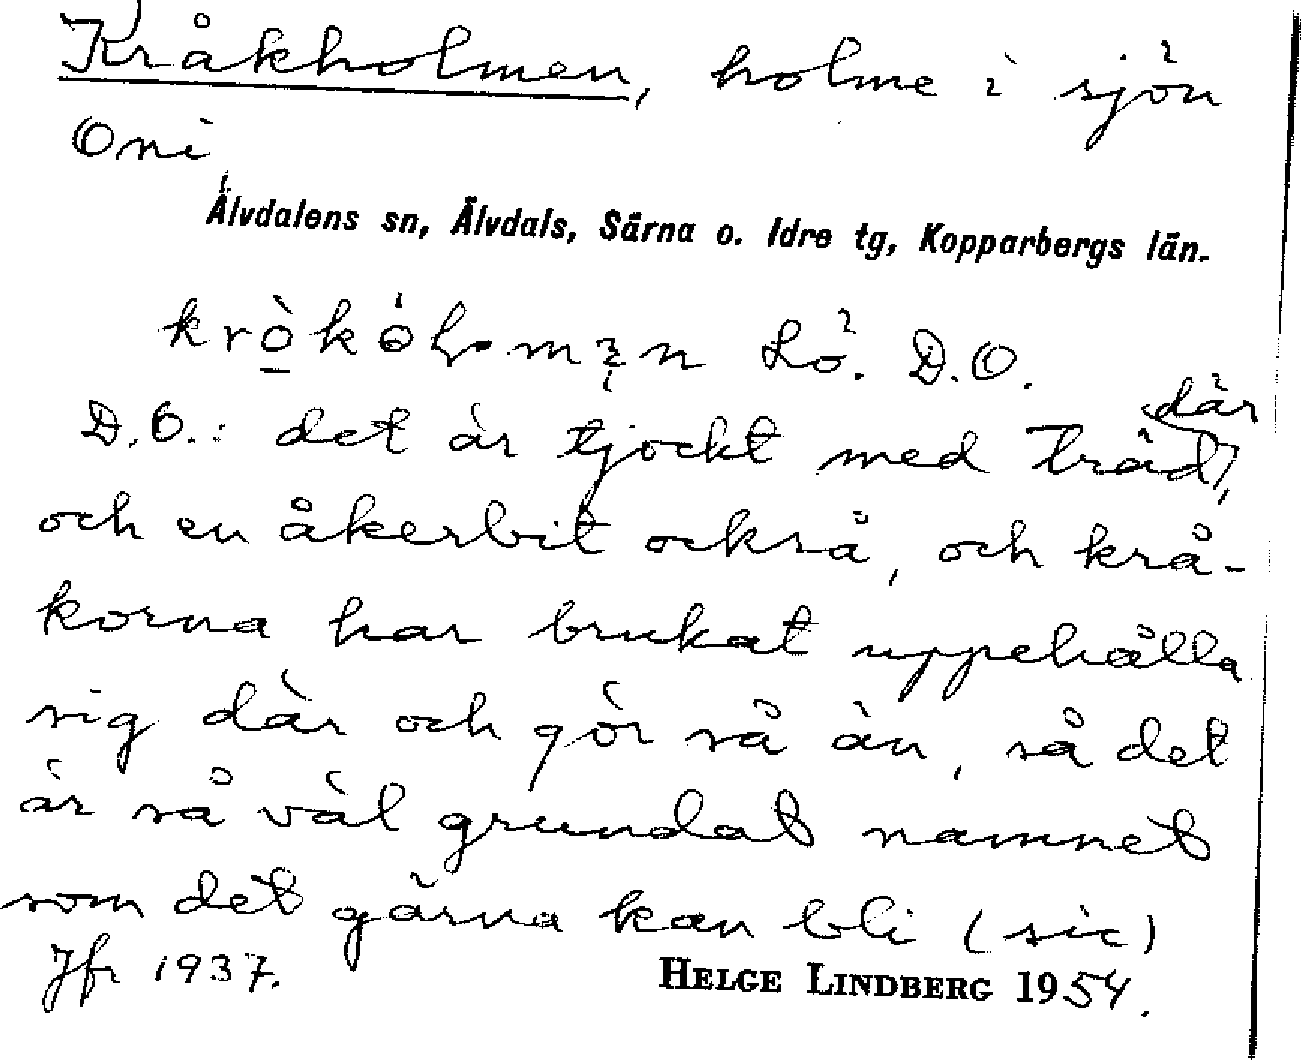 Kråkholmen, holme i sjön
Oni
Älvdalens sn, Älvdals, Särna o. Idre tg, Kopparbergs län.
Lö. D.O.
där
D.O.: det är tjockt med träd,
och en åkerbit också, och krå-
korna har brukat uppehålla
sig där och gör så än, så det
är så väl grundat namnet
som det gärna kan bli (sic)
Jfr 1937.
HELGE LINDBERG 1954.